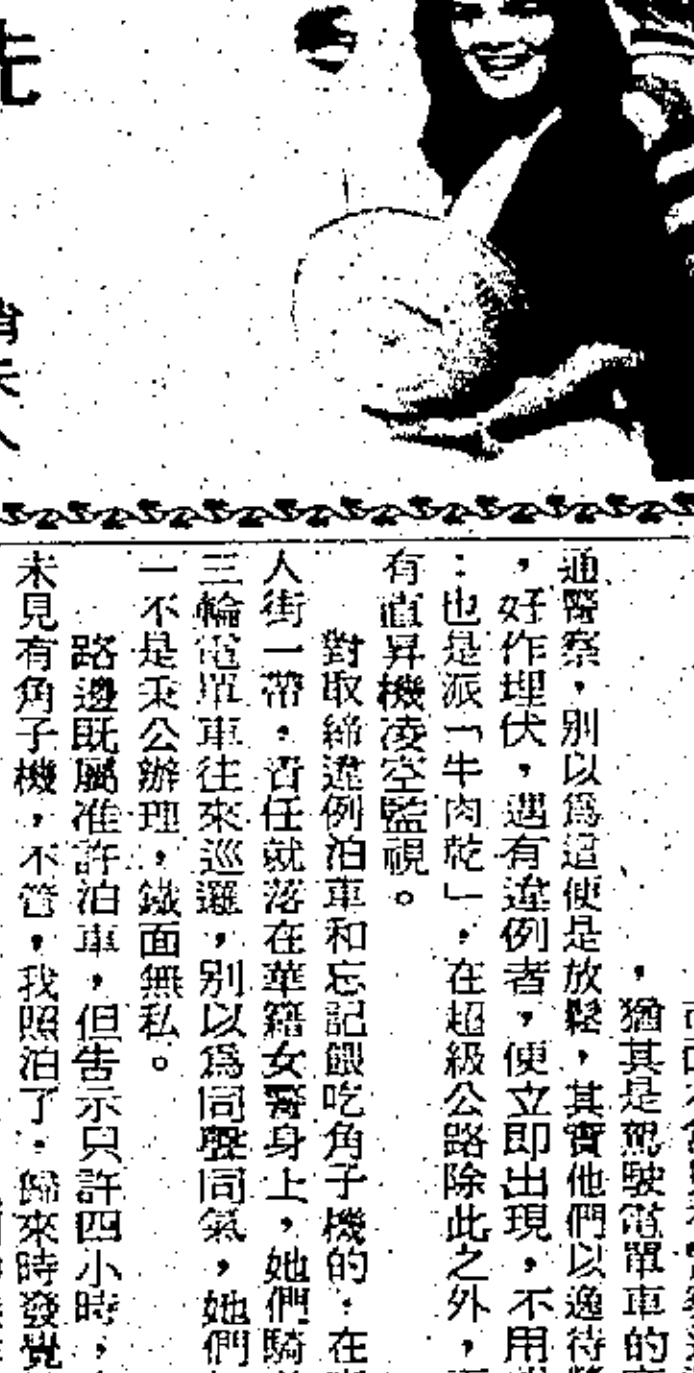 ，猶其是駕駛電單車的
通警察，別以爲這便是放鬆，其實他們以逸待
，好作埋伏，遇有違例者，便立即出現，不用
：也是派「牛肉乾」，在超級公路除此之外，
有直昇機凌空監視。
對取締違例泊車和忘記餵吃角子機的，在
人街一帶，責任就落在華籍女警身上，她們騎
三輪電單車往來巡邏，別以爲同聲同氣，她們
一不是秉公辦理，鐵面無私。
路邊既屬准許泊車，但告示只許四小時，
未見有角子機，不管，我照泊了，歸來時發覺